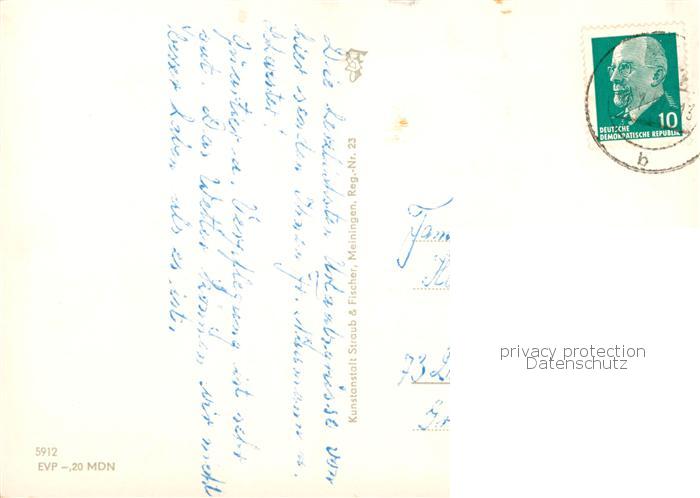 Die herzlichsten Urlaubsgrüsse von
hier senden Ihnen Fr. Naumann u.
Quartier u. Verpflegung ist sehr
gut. Das Wetter können wir nicht
besser haben als es ist.
Kunstanstalt Straub & Fischer, Meiningen, Reg.-Nr. 23
10
DEUTSCHE
DEMOKRATISCHE REPUBLIK
b
Fam
73
privacy protection
Datenschutz
5912
EVP -,20 MDN